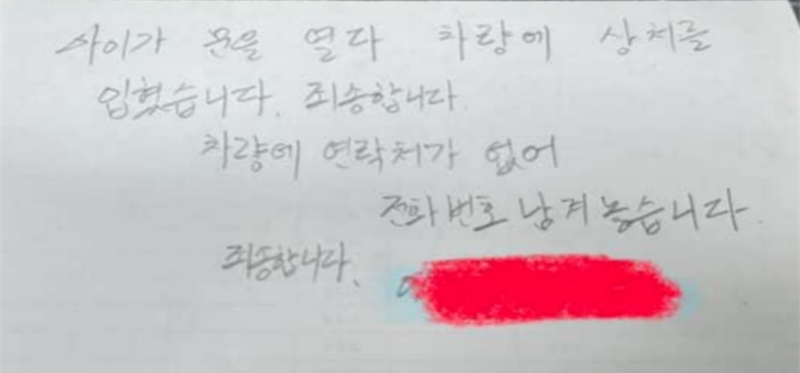 사이가 문을 열다 차량에 상처를
입혔습니다. 죄송합니다.
차량에 연락처가 없어
전화번호 남겨 놓습니다.
죄송합니다.